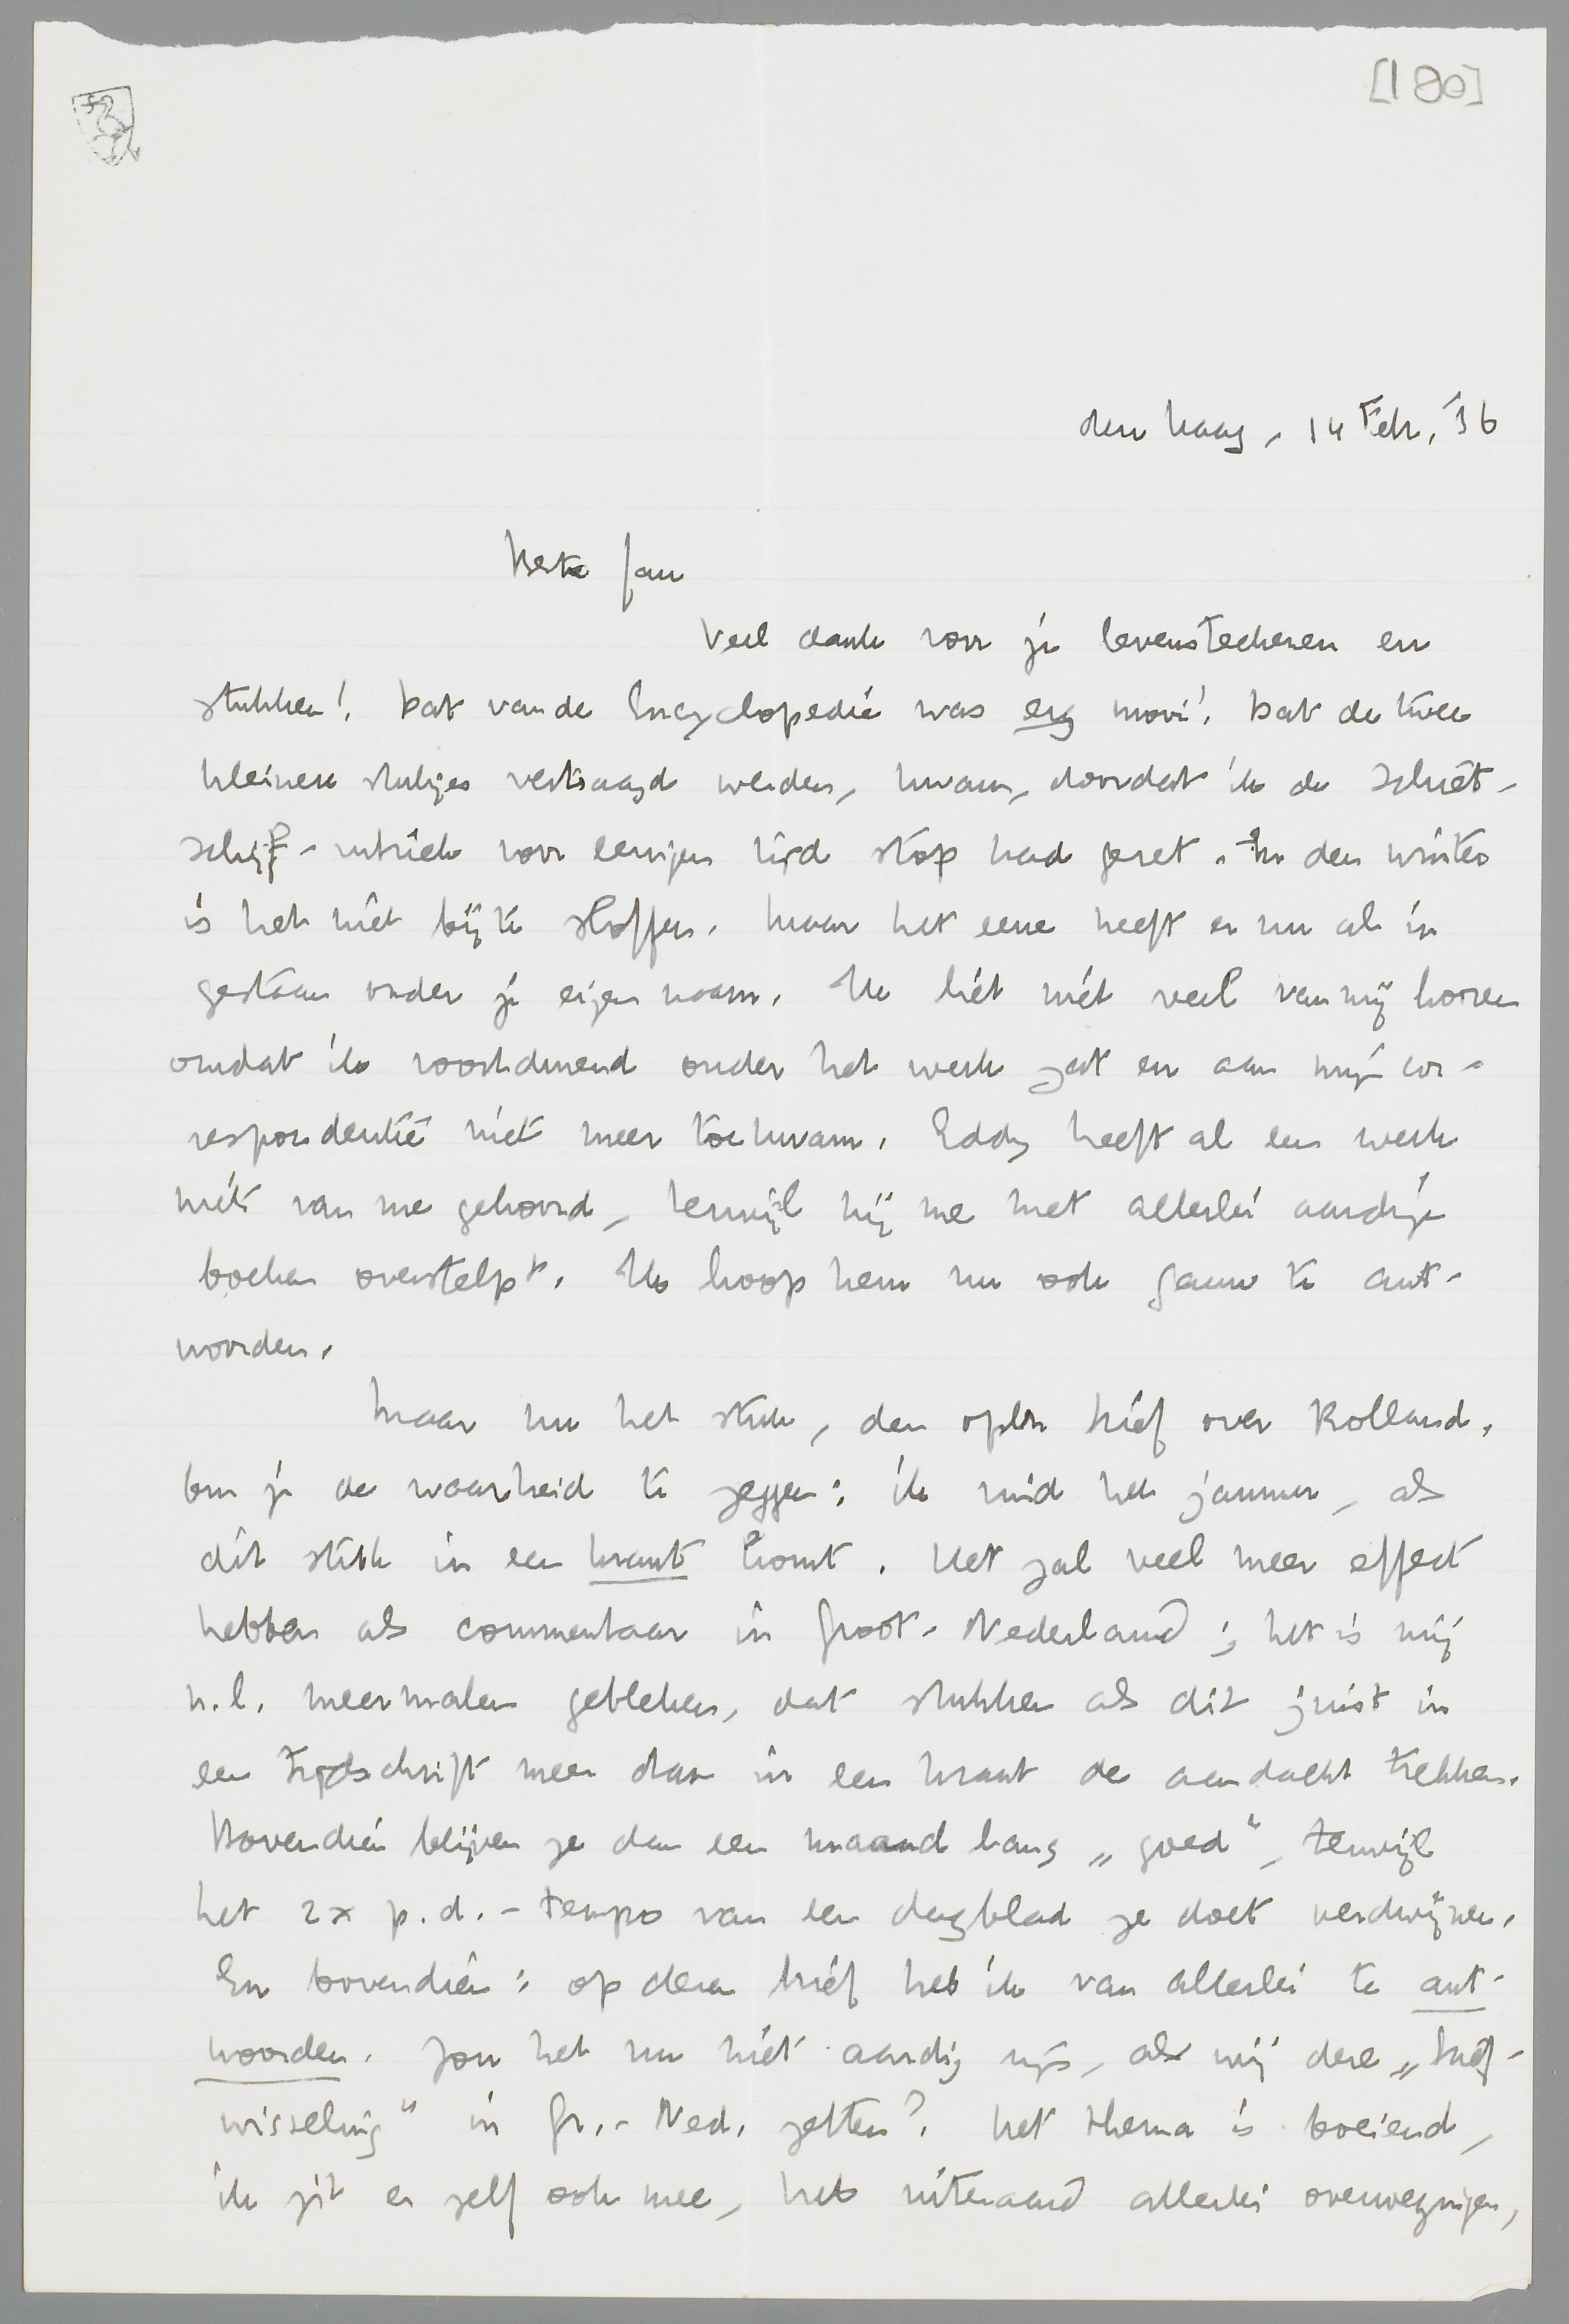 [180]
den haag, 14 Febr. '36
Beste Jan
Veel dank voor je levensteekenen en
stukken! Dat van de Encyclopedie was erg mooi! Dat de twee
kleinere stukjes vertraagd werden, kwam, doordat ik de Schiet-
schijf-rubriek voor eenigen tijd stop had gezet. In den winter
is het niet bij te sloffen. Maar het eene heeft er nu al in
gestaan onder je eigen naam. Ik liet niet veel van mij hooren
omdat ik voortdurend onder het werk zat en aan mijn cor-
respondentie niet meer toekwam. Eddy heeft al een week
niets van me gehoord, terwijl hij me met allerlei aardige
boeken overstelpt. Ik hoop hem nu ook gauw te ant-
woorden.
Maar nu het stuk, den open brief over Rolland.
Om je de waarheid te zeggen: ik vind het jammer, als
dit stuk in een krant komt. Het zal veel meer effect
hebben als commentaar in Groot-Nederland; het is mij
n.l. meermalen gebleken, dat stukken als dit juist in
een tijdschrift meer dan in een krant de aandacht trekken.
Bovendien blijven ze dan een maand lang „goed", terwijl
het 2x p.d.-tempo van een dagblad ze doet verdwijnen.
En bovendien: op dezen brief heb ik van allerlei te ant-
woorden. Zou het nu niet aardig zijn, als wij deze „brief-
wisseling" in Gr.-Ned. zetten? Het thema is boeiend,
ik zit er zelf ook mee, heb uiteraard allerlei overwegingen,